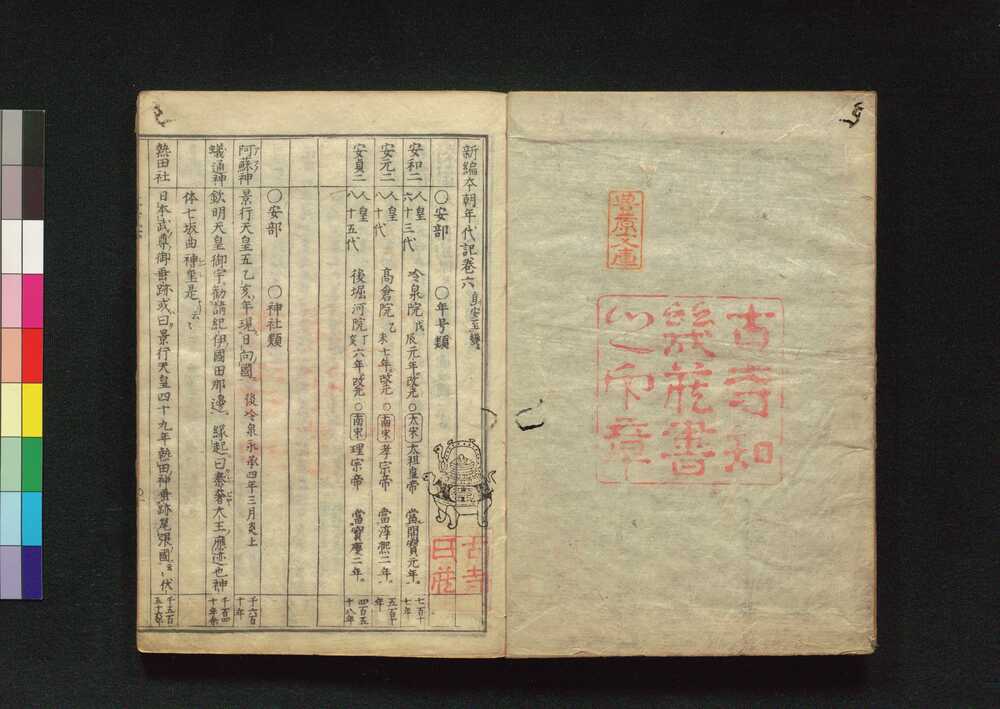 古寺知
幾蔵書
之印章
新編本朝年代記巻六
〇安部 〇年号類
安和二 人皇六十三代 冷泉院 戊辰元年改元〇太宋太祖皇帝 當開寳元年 七百十七年
安元二 人皇八十代 髙倉院 乙未七年改元〇南宋孝宗帝 當淳熙二年 五百十年
安貞二 人皇八十五代 後堀河院 丁亥六年改元〇南宋理宗帝 當寳慶二年 四百五十八年
〇安部 〇神社類
阿蘇神 景行天皇五乙亥年現日向國 後冷泉永承四年三月炎上 千六百十年
蟻通神 欽明天皇御宇勧請紀伊國田那邊 縁起曰 大王應迹也神 千百四十年余
体七坂曲 是
熱田社 日本武尊御垂跡或曰景行天皇四十九年熱田神垂跡尾張國云云伏 千五百五十六年
古寺